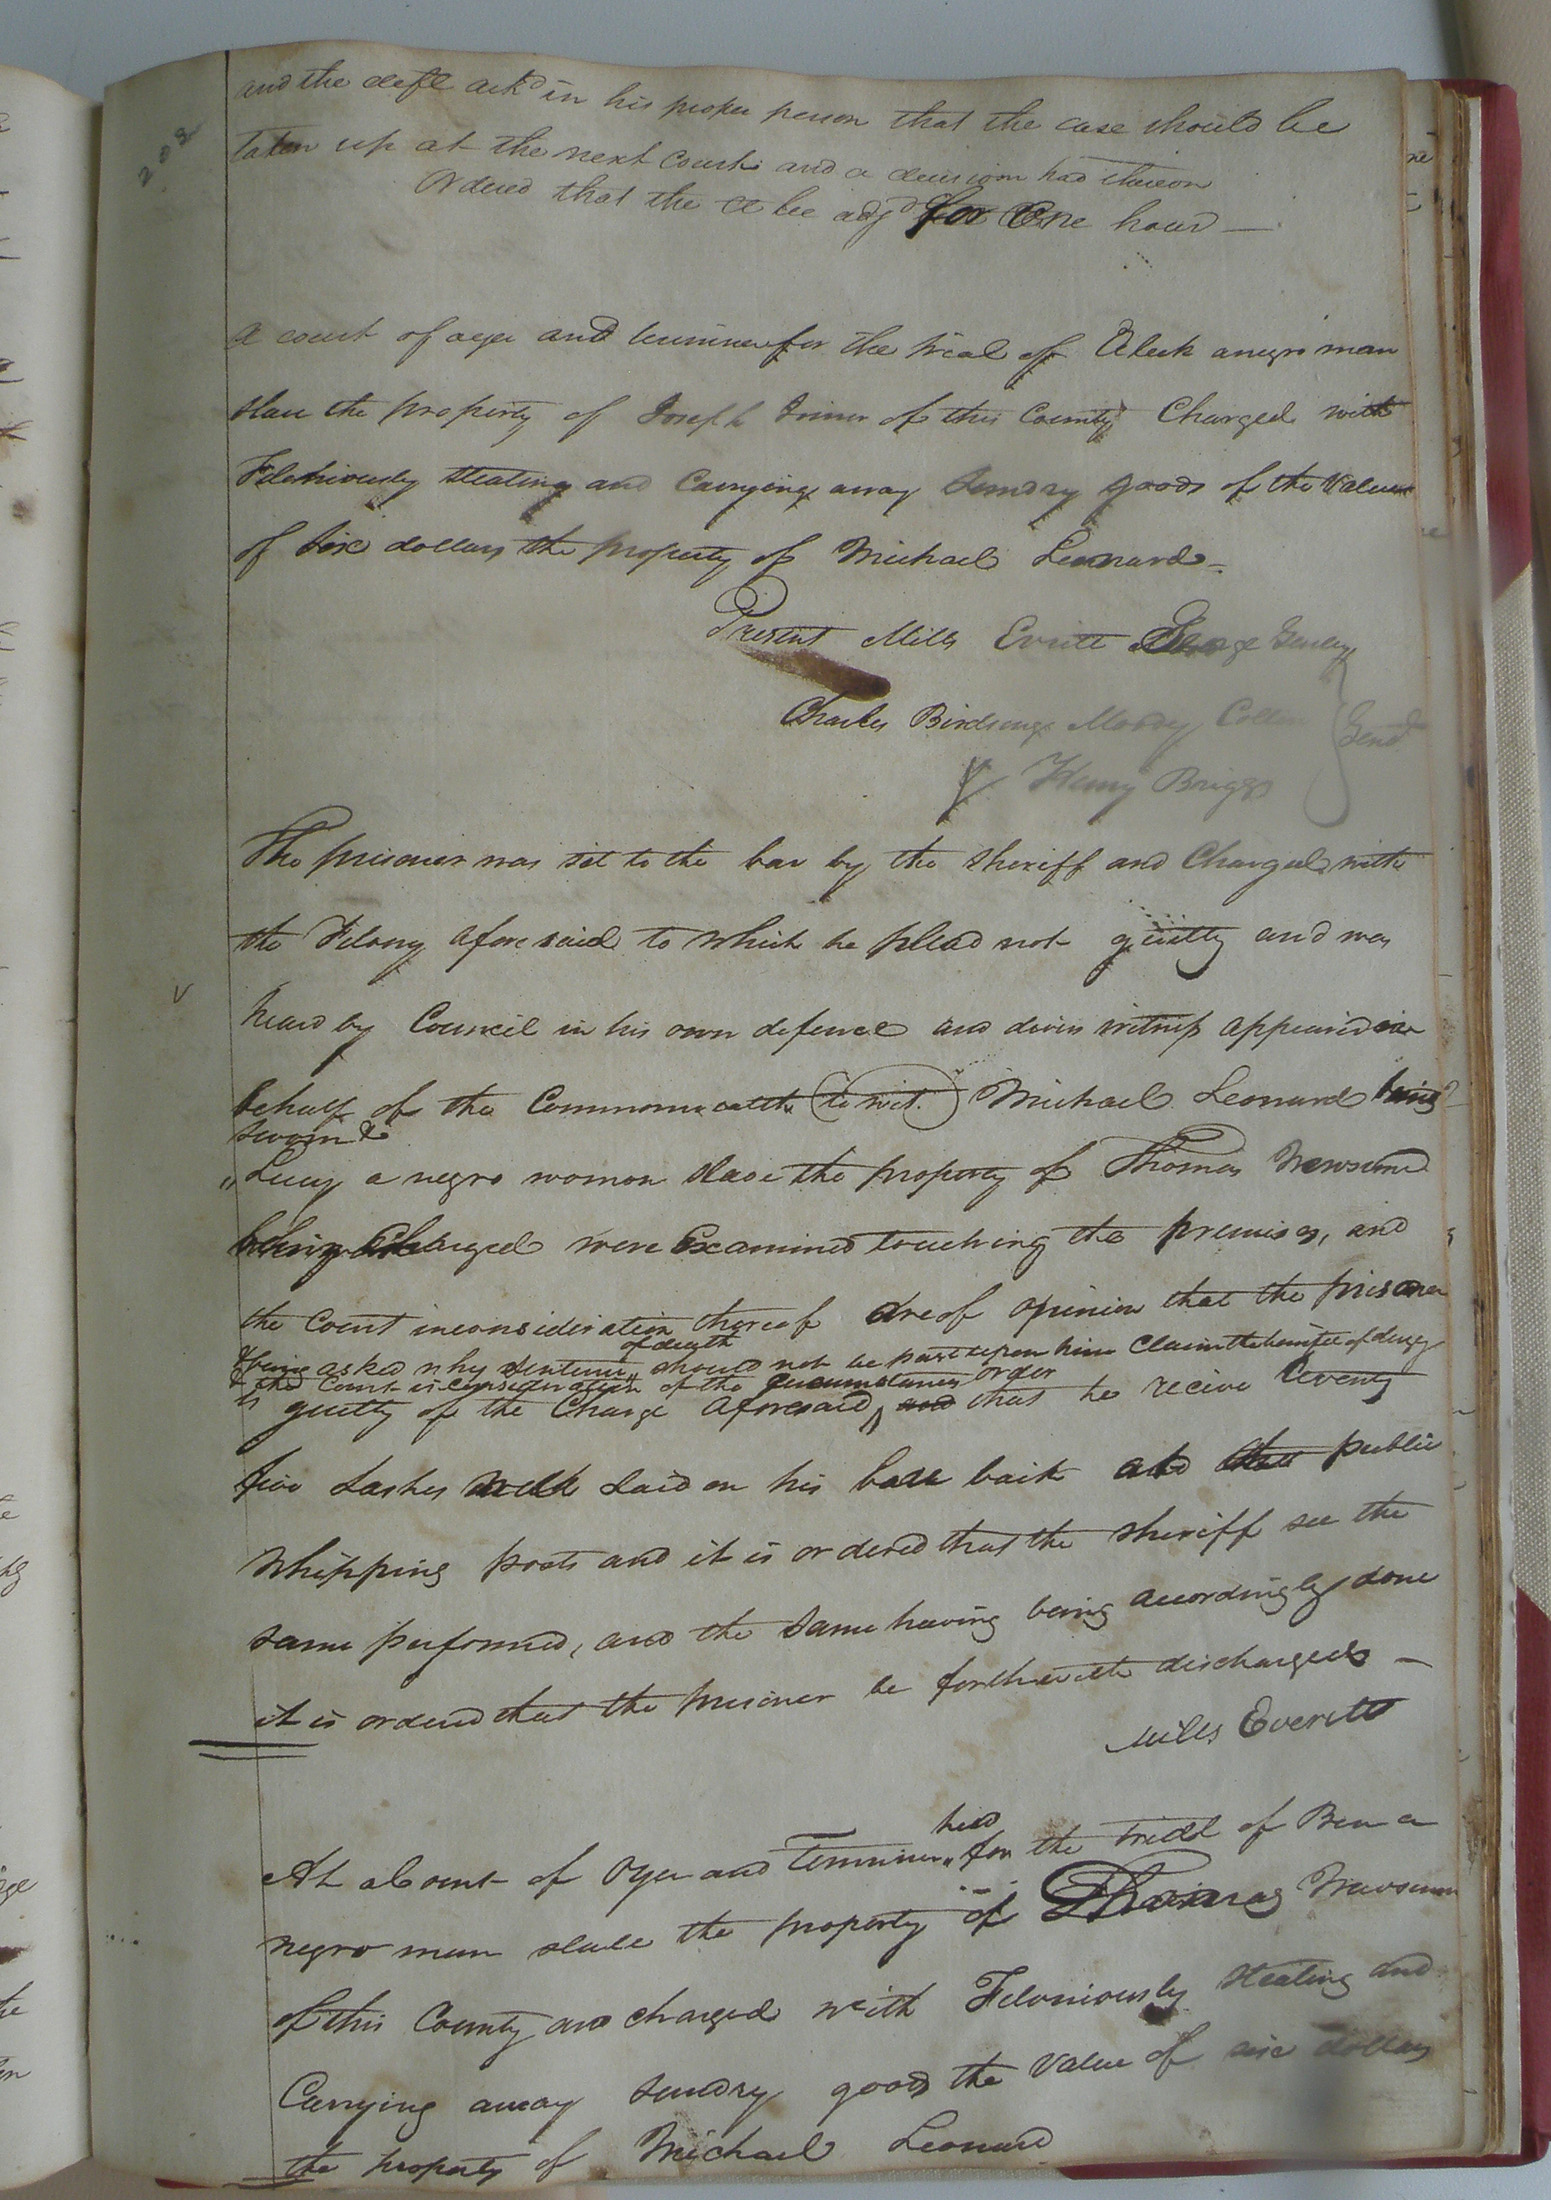 and the deft ackd in his proper person that the case should be
202
taken up at the next court and a decision had thereon
Ordered that the Ct be adjd for One hour —
A court of oyer and terminer for the trial of Aleck a negro man
slave the property of Joseph of this County Charged with
Feloniously stealing and Carrying away Sundry goods of the Value
of six dollars the property of Michael Leonard —
Present Mills Evritt George Gurley
Charles Birdsong Moody Gent
& Henry Briggs
The prisoner was set to the bar by the Sheriff and Charged with
the Felony aforesaid to which he plead not guilty and was
heard by Council in his own defence and divers witness appeared in
behalf of the Commonwealth (to wit.) Michael Leonard being
sworn &
Lucy a negro woman slave the property of Thomas Newsum
being Charged were Examined touching the premises, and
the Court in consideration thereof are of opinion that the prisoner
of death
& being asked why sentence should not be past upon him Claim the benifit of clergy
& the Court in consideration of the circumstances order
is guilty of the Charge aforesaid, and that he recive twenty
five Lashes well Laid on his bare back at the public
whipping post and it is ordered that the sheriff see the
same performed, and the same having being accordingly done
it is ordered that the prisoner be forthwith discharged —
Mills Everitt
held
At a Court of Oyer and Terminer for the trial of Ben a
negro man slave the property of Thomas Newsum
of this County and charged with Feloniously stealing and
Carrying away sundry goods the value of six dollars
the property of Michael Leonard